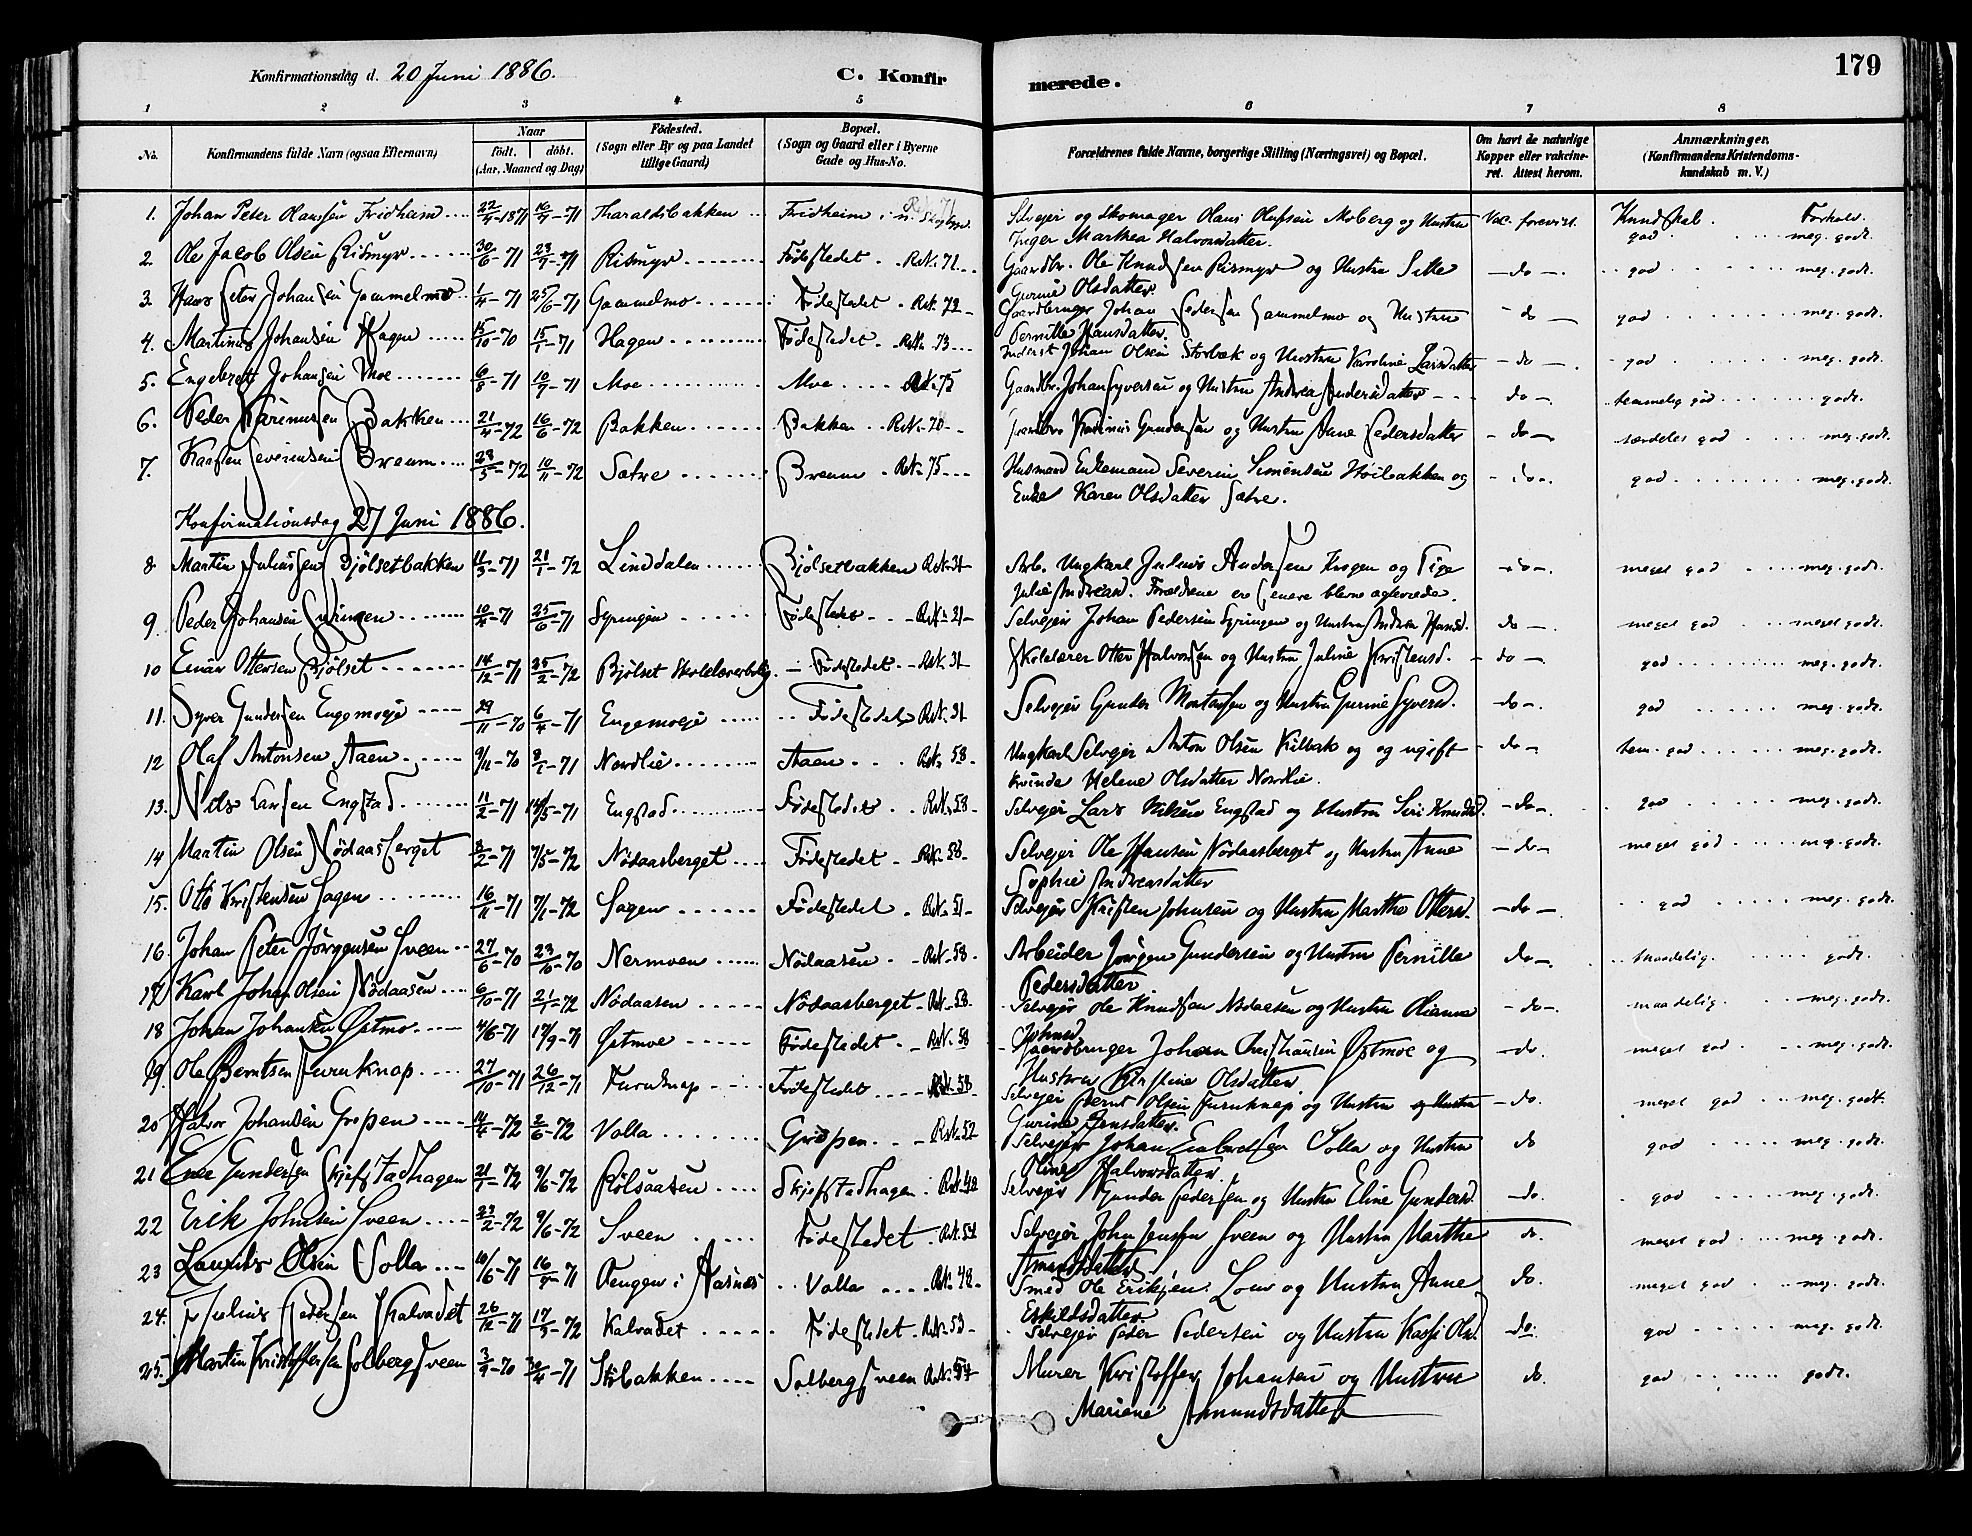 Konfirmationsdag d. 20 Juni 1886.
C. Konfirmerede.
179
1 2 3 4 5 6 7 8
No.
Konfirmandens fulde Navn (ogsaa Efternavn)
Naar
født. døbt.
(Aar, Maaned og Dag)
Fødested.
(Sogn eller By og paa Landet
tillige Gaard)
Bopæl.
(Sogn og Gaard eller i Byerne
Gade og Hus-No.
Forældrenes fulde Navne, borgerlige Stilling (Næringsvei) og Bopæl.
Om havt de naturlige
Kopper eller vakcine-
ret. Attest herom.
Anmærkninger.
(Konfirmandens Kristendoms-
kundskab m. V.)
Kundskab. Forhold.
1. Johan Peter Olaussen Fridheim 22/4-1871 16/7-71 Tharaldsbakken Fridheim Selveier og Skomager Olaus Olufsen Moberg og Hustru Vac. forevist. god meg. godt.
Inger Marthea Halvorsdatter.
2. Ole Jacob Olsen Rismyr 30/6-71 23/7-71 Rismyr Fødestedet Rk. 71 Gaardbr. Ole Knudsen Rismyr og Hustru do god meg. godt.
Gurine Olsdatter.
3. Hans Peter Johansen Gammelmo 1/4-71 25/6-71 Gammelmo Fødestedet Rk. 72 Gaardbruger Johan Pedersen Gammelmo og Hustru do god meg. godt.
Pernille Hansdatter.
4. Martinus Johansen Hagen 15/10-70 15/1-71 Hagen Fødestedet Rk. 73 Inderst Johan Olsen Storbæk og Hustru Karoline Larsdatter do god meg. godt.
5. Engebret Johansen Moe 6/8-71 10/9-71 Moe Moe Rk. 75 Gaardbr. Johan Syversen og Hustru Andrea Andersdatter do temmelig god godt.
6. Peder Karinussen Bakken 21/4-72 16/6-72 Bakken Bakken Rk. 70 Karinus Gundersen og Hustru Anne Pedersdatter do særdeles god meg. godt.
7. Kaasten Severinsen Breum 23/5-72 10/11-72 Sætre Breum Rk. 75 Husmand Enkemand Severin Simensen Hvilbakken og do god meg. godt.
Enke Karen Olsdatter Sætre.
Konfirmationsdag 27 Juni 1886.
8 Martin Juliussen Bjølsetbakken 11/3-71 21/1-72 Linddalen Bjølsetbakken Rk. 31 Arb. Ungkarl Julius Andersen Krogen og Pige do meget god meg. godt.
Julie Andreasd. Forældrene er senere blevne ægteviede.
9 Peder Johansen Syringen 10/4-71 25/6-71 Syringen Fødestedet Rk. 31 Selveier Johan Pedersen Syringen og Hustru Andrea Hansd. do meget god meget godt.
10 Einar Ottersen Bjølset 14/12-71 25/2-72 Bjølset Skolelærerbolig Fødestedet Rk. 31 Skolelærer Otter Halvorsen og Hustru Juline Kristensd. do god meg. godt.
11. Syver Gundersen Engemoeje 29/11-70 6/4-71 Engemoeje Fødestedet Rk. 31 Selveier Gunder Mortensen og Hustru Gurine Syversd. do god meg. godt.
12 Olaf Antonsen Aaen 9/11-70 8/1-71 Nordlie Aaen Rk. 58 Ungkarl Selveier Anton Olsen Kilbak og og ugift do tem. god meg. godt.
Kvinde Helene Olsdatter Nordlie.
13. Nils Larsen Engstad 11/2-71 14/5-71 Engstad Fødestedet Rk. 58 Selveier Lars Nilsen Engstad og Hustru Siri Knudsd. do god meg. godt.
14 Martin Olsen Nødaasberget 8/2-71 7/5-72 Nødaasberget Fødestedet Rk. 58 Selveier Ole Hansen Nødaasberget og Hustru Anne do meget god meg. godt.
Sophie Andreasdatter
15. Otto Kristensen Sagen 16/11-71 7/1-72 Sagen Fødestedet Rk. 51 Selveier Kristen Johnsen og Hustru Marthe Ottersd. do god meg. godt.
16 Johan Peter Jørgensen Sveen 27/6-70 23/10-70 Nermoen Nødaasen Rk. 58 Arbeider Jørgen Gundersen og Hustru Pernille do maadelig. godt.
Pedersdatter
17 Karl Johan Olsen Nødaasen 6/10-71 21/1-72 Nødaasen Nødaasberget Rk. 58 Selveier Ole Knudsen Nødaasen og Hustru Oleanna do maadelig meg. godt.
Johnsd.
18 Johan Johansen Østmo 4/6-71 17/9-71 Østmoe Fødestedet Rk. 58 Gaardbruger Johan Østmoe og do meget god meg. godt.
Hustru Kirstine Olsdatter
19 Ole Berntsen Furuknap 27/10-71 26/12-71 Furuknap Fødestedet Rk. 58 Selveier Bernt Olsen Furuknap og Hustru og Hustru do meget god meg. godt.
Gurine Jensdatter.
20 Halvor Johansen Grøpen 14/4-72 2/6-72 Volla Grøpen Rk. 52 Selveier Johan Embretsen Solla og Hustru do god meg. godt.
Oline Halvorsdatter
21 Gundersen Skjefstadhagen 21/1-72 9/6-72 Rølsaasen Skjefstadhagen Rk. 48 Selveier Gunder Pedersen og Hustru Eline Gundersd. do god meg. godt.
22 Erik Johnsen Sveen 23/2-72 9/6-72 Sveen Fødestedet Rk. 54 Selveier John Jensen Sveen og Hustru Marthe do meget god meg. godt.
Amundsdatter
23 Laurits Olsen Volla 10/6-71 16/7-71 Oengen i Aasnes Volla Rk. 48 Smed Ole Eriksen Lou og Hustru Anne do meget god meg. godt.
Eskildsdatter.
24. Julius Pedersen Kalvadet 26/12-71 17/3-72 Kalvadet Fødestedet Rk. 53 Selveier Peder Pedersen og Hustru Kasji Olsd. do. god meg. godt.
25. Martin Kristoffersen Solbergsveen 3/9-70 30/4-71 Stibakken Solbergsveen Rk. 54 Murer Kristoffer Johansen og Hustru do. god godt.
Mariene Amundsdatter